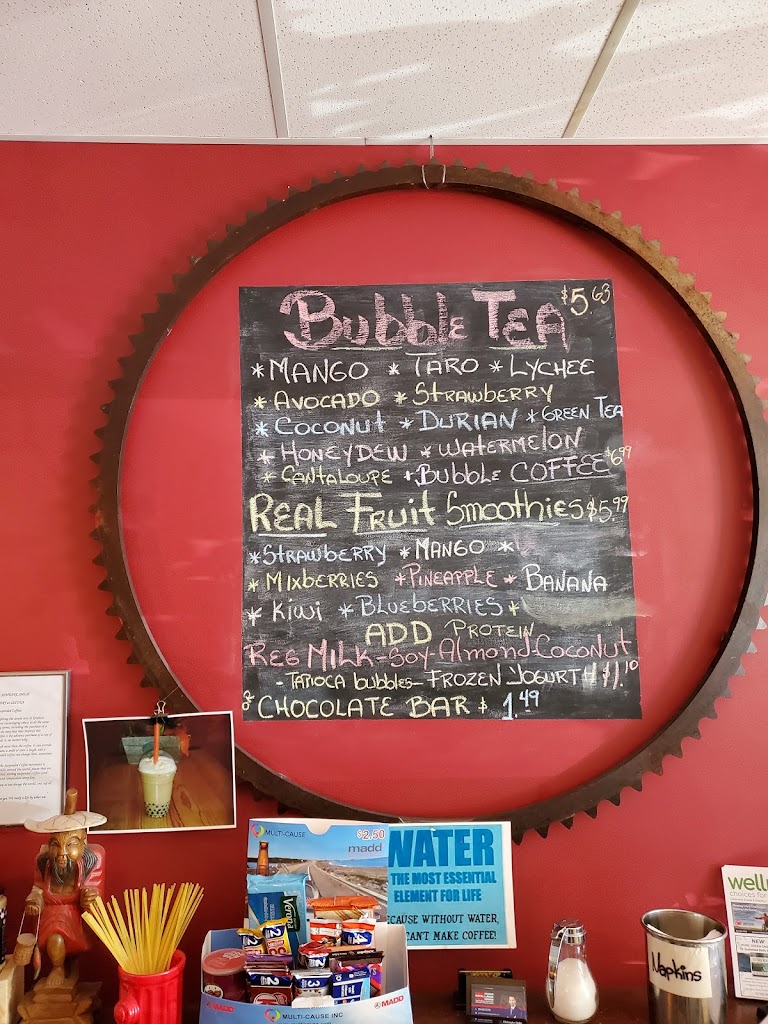 Bubble Tea $5.63
* Mango * Taro * Lychee
* Avocado * Strawberry
* Coconut * Durian * Green Tea
* Honeydew * Watermelon
* Cantaloupe * Bubble Coffee $6.99
Real Fruit Smoothies $5.99
* Strawberry * Mango *
* Mixberries * Pineapple * Banana
* Kiwi * Blueberries *
ADD Protein
Reg Milk-Soy-Almond-Coconut
-Tapioca bubbles-Frozen Yogurt $1.10
Chocolate Bar $1.49
MULTI-CAUSE
$2.50
madd
WATER
THE MOST ESSENTIAL
ELEMENT FOR LIFE
ECAUSE WITHOUT WATER,
CAN'T MAKE COFFEE!
MADD
MULTI-CAUSE INC
MADD
Napkins
well
choices fo
NEW